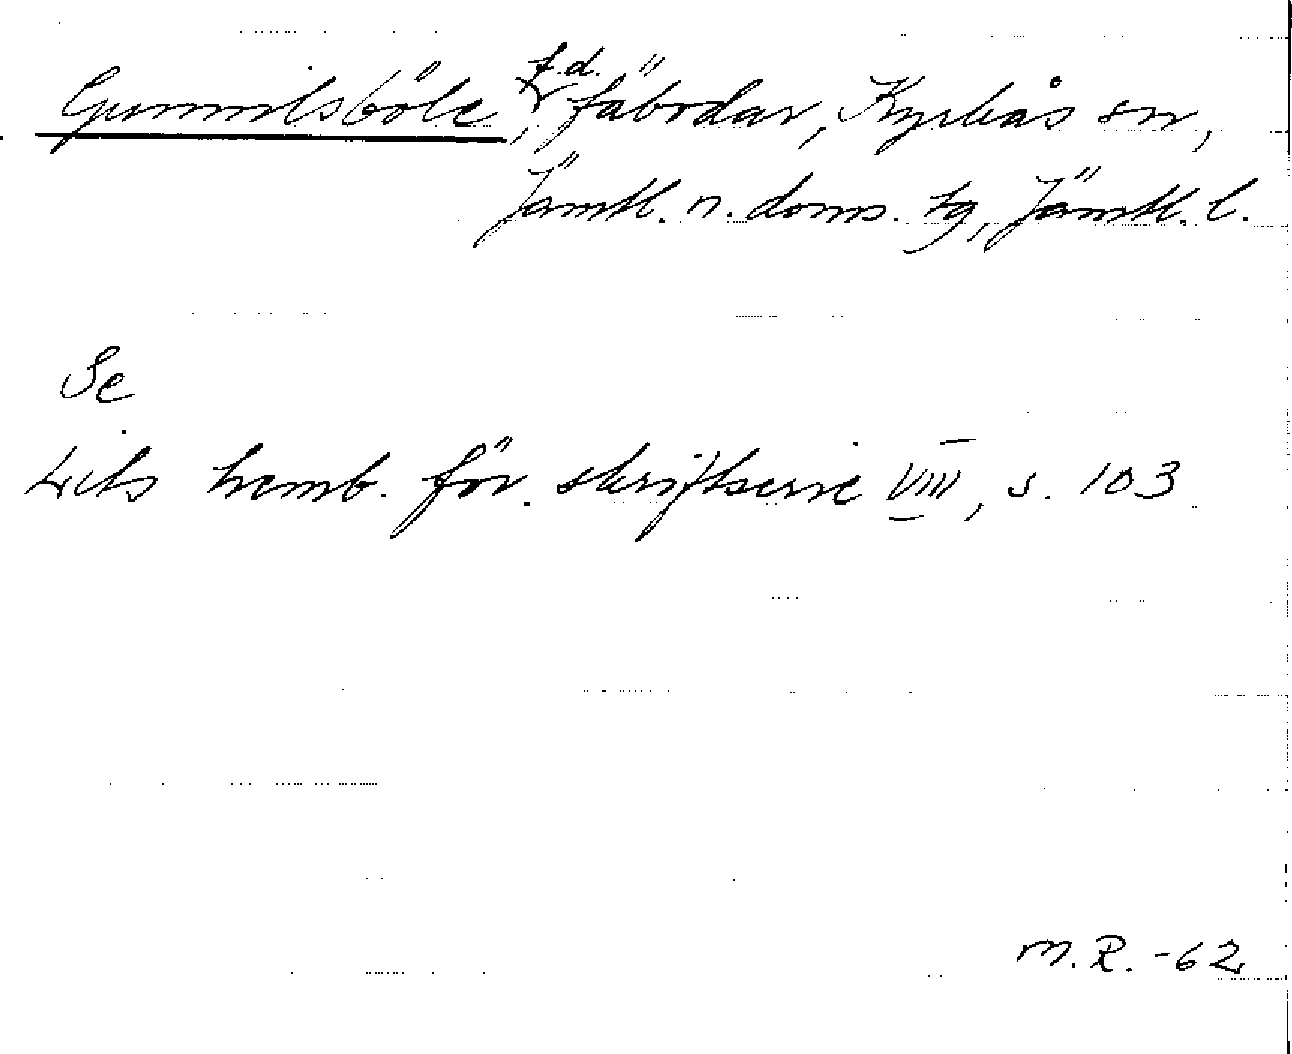 Gunnilsböle, f.d. fäbodar, Kyrkås sn,
Jämtl. n. doms. tg, Jämtl. l.
Se
Lits hemb. för. skriftserie VIII, s. 103
M.R. -62